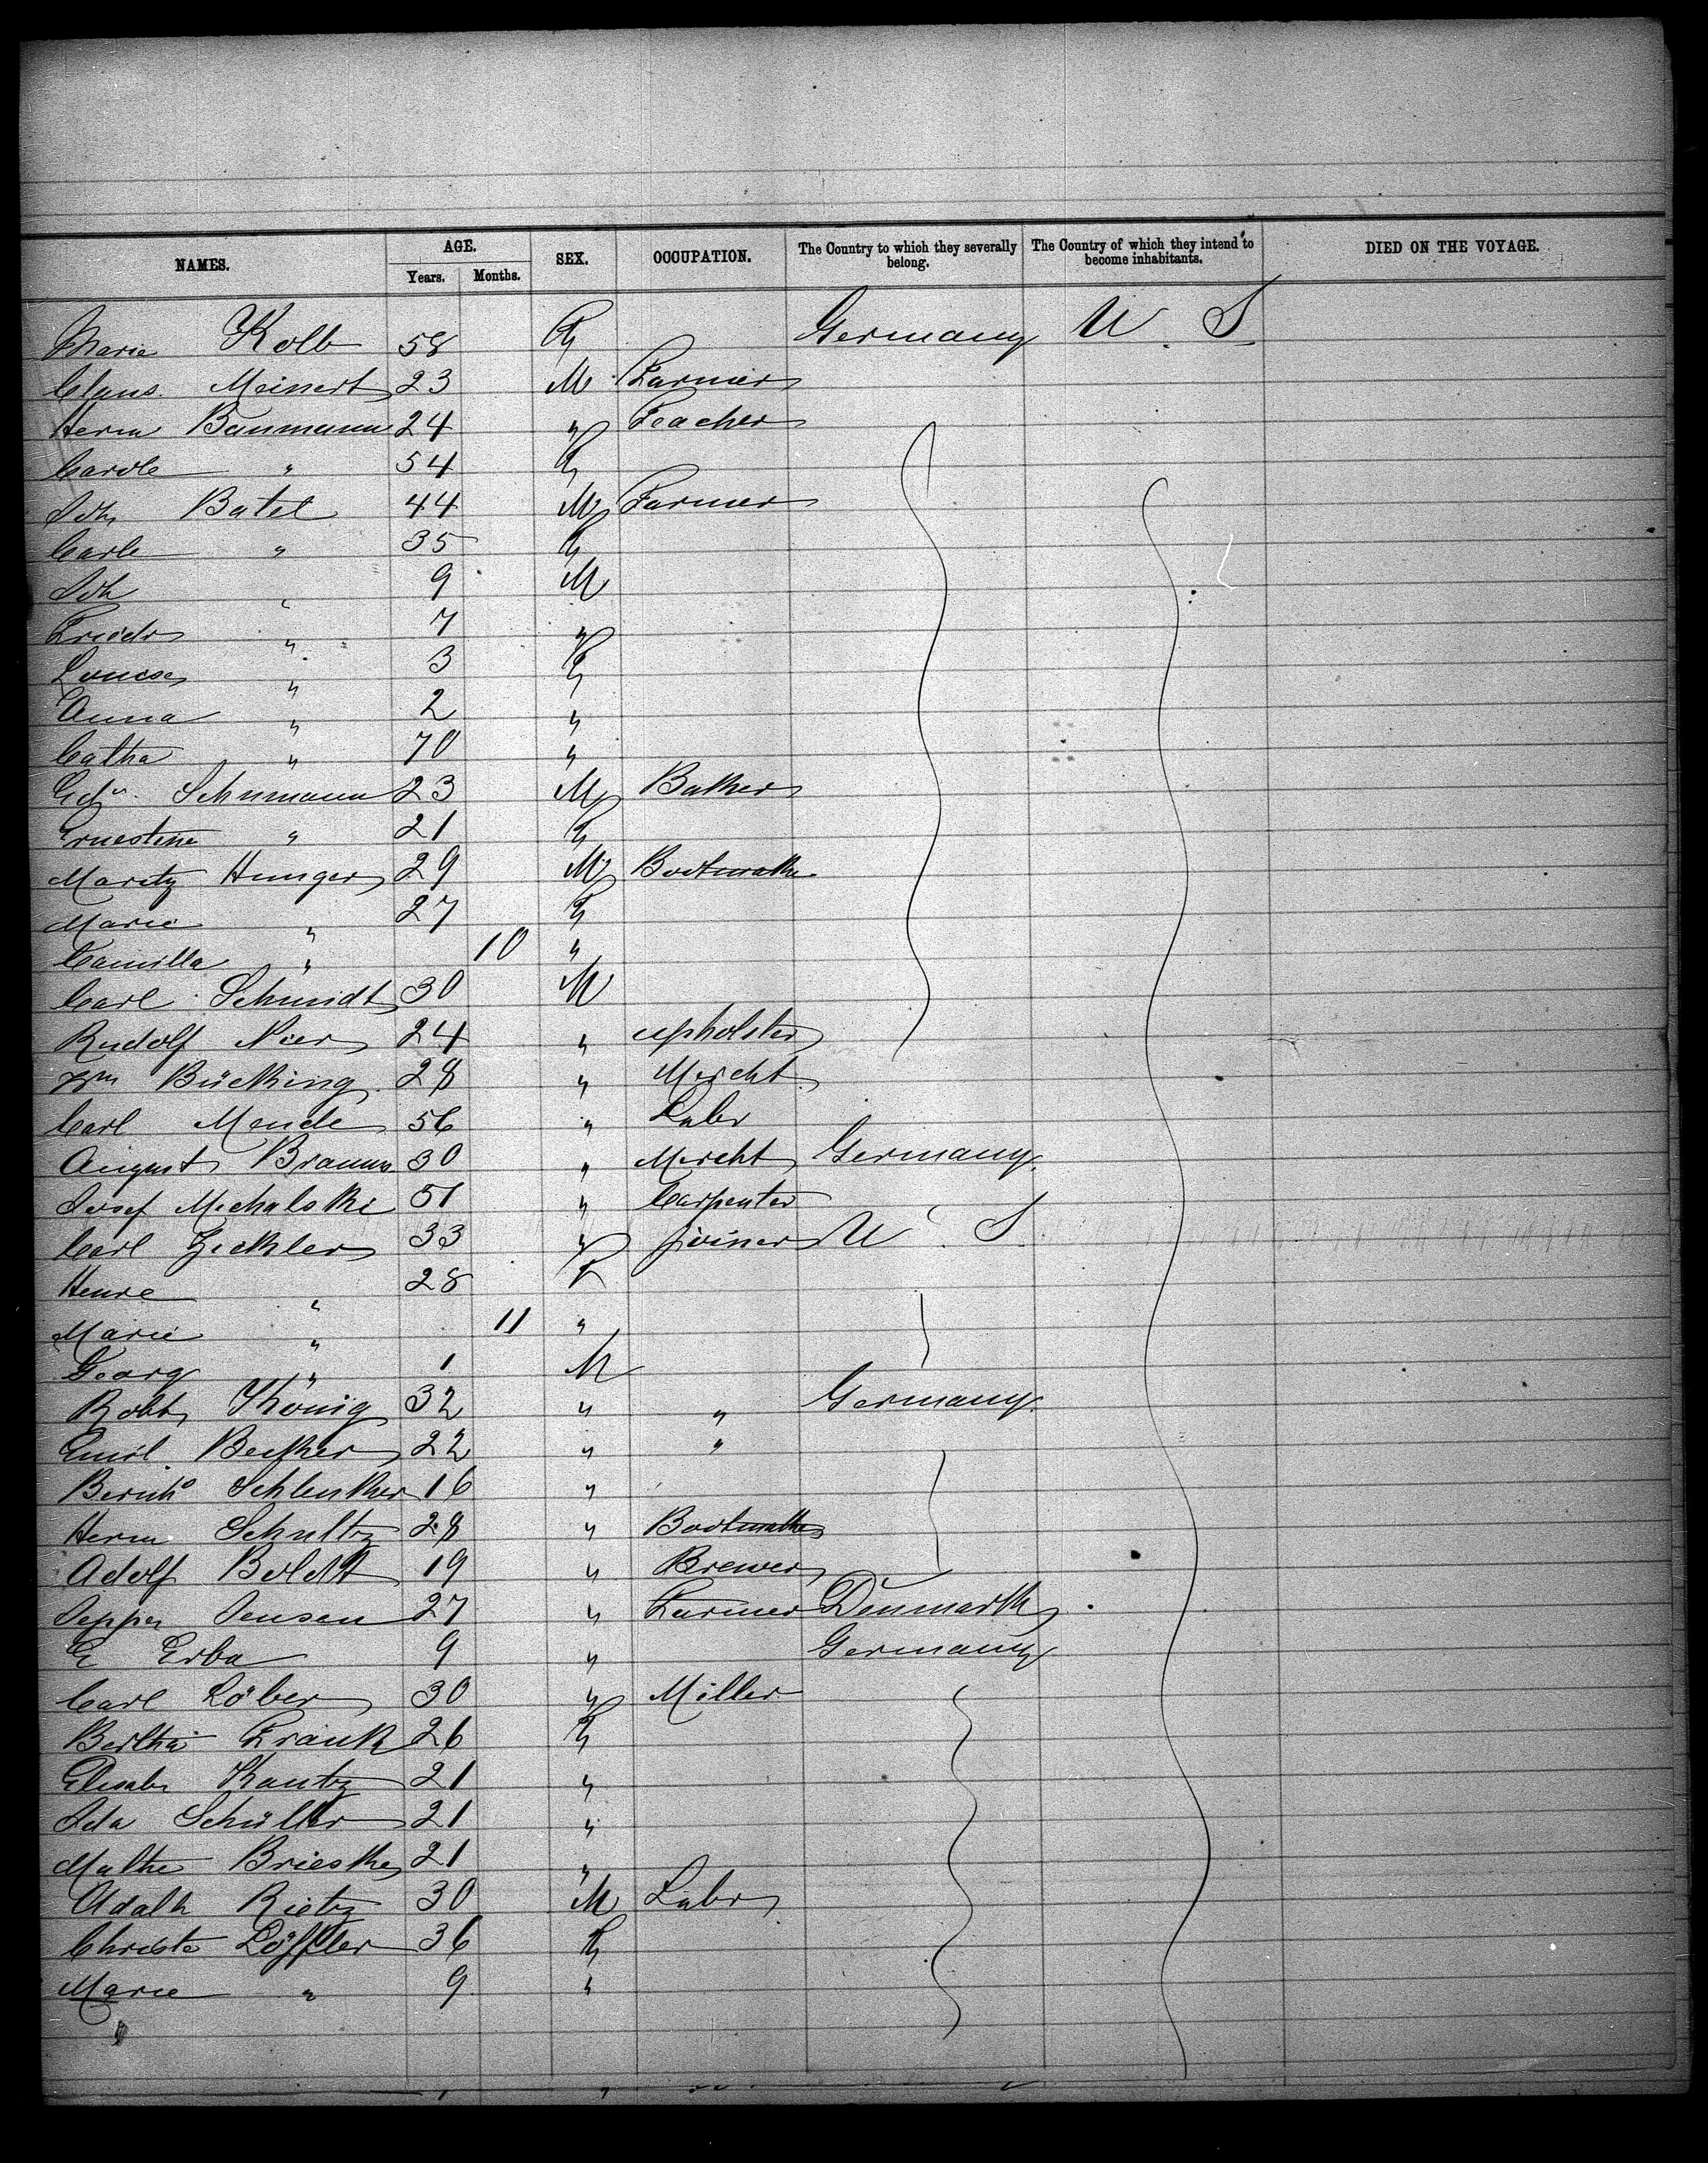 NAMES. AGE. Years. Months. SEX. OCCUPATION. The Country to which they severally belong. The Country of which they intend to become inhabitants. DIED ON THE VOYAGE.
Marie Kolb 58 F Germany U. S.
Claus Meinert 23 M Farmer
Herm Baumann 24 " Teacher
Carole " 54 F
Joh Batel 44 M Farmer
Carle " 35 F
Joh " 9 M
Friedr " 7 "
Louise " 3 F
Anna " 2 "
Catha " 70 "
Edu. Schumann 23 M Baker
Ernestine " 21 F
Moritz Hunger 29 M Bootmaker
Marie " 27 F
Camilla " 10 "
Carl Schmidt 30 M
Rudolf Nier 24 " upholster
Wm Bücking 28 " Mercht
Carl Mende 56 " Labr
August Braun 30 " Mercht Germany
Josef Michalski 51 " Carpenter
Carl Zeckler 33 " joiner U. S.
Henre " 28 F
Marie " 11 "
Georg " 1 M
Robt König 32 " " Germany
Emil Becker 22 " "
Bernhd Schlenker 16 "
Herm Schultz 28 " Bootmaker
Adolf Boldt 19 " Brewer
Jepper Jensen 27 " Farmer Denmark
E Erba 9 " Germany
Carl Löber 30 " Miller
Bertha Frank 26 F
Elisabe Kautz 21 "
Ida Schüller 21 "
Malthe Brieske 21 "
Adalb Rietz 30 M Labr
Christe Löffler 36 F
Marie " 9 "